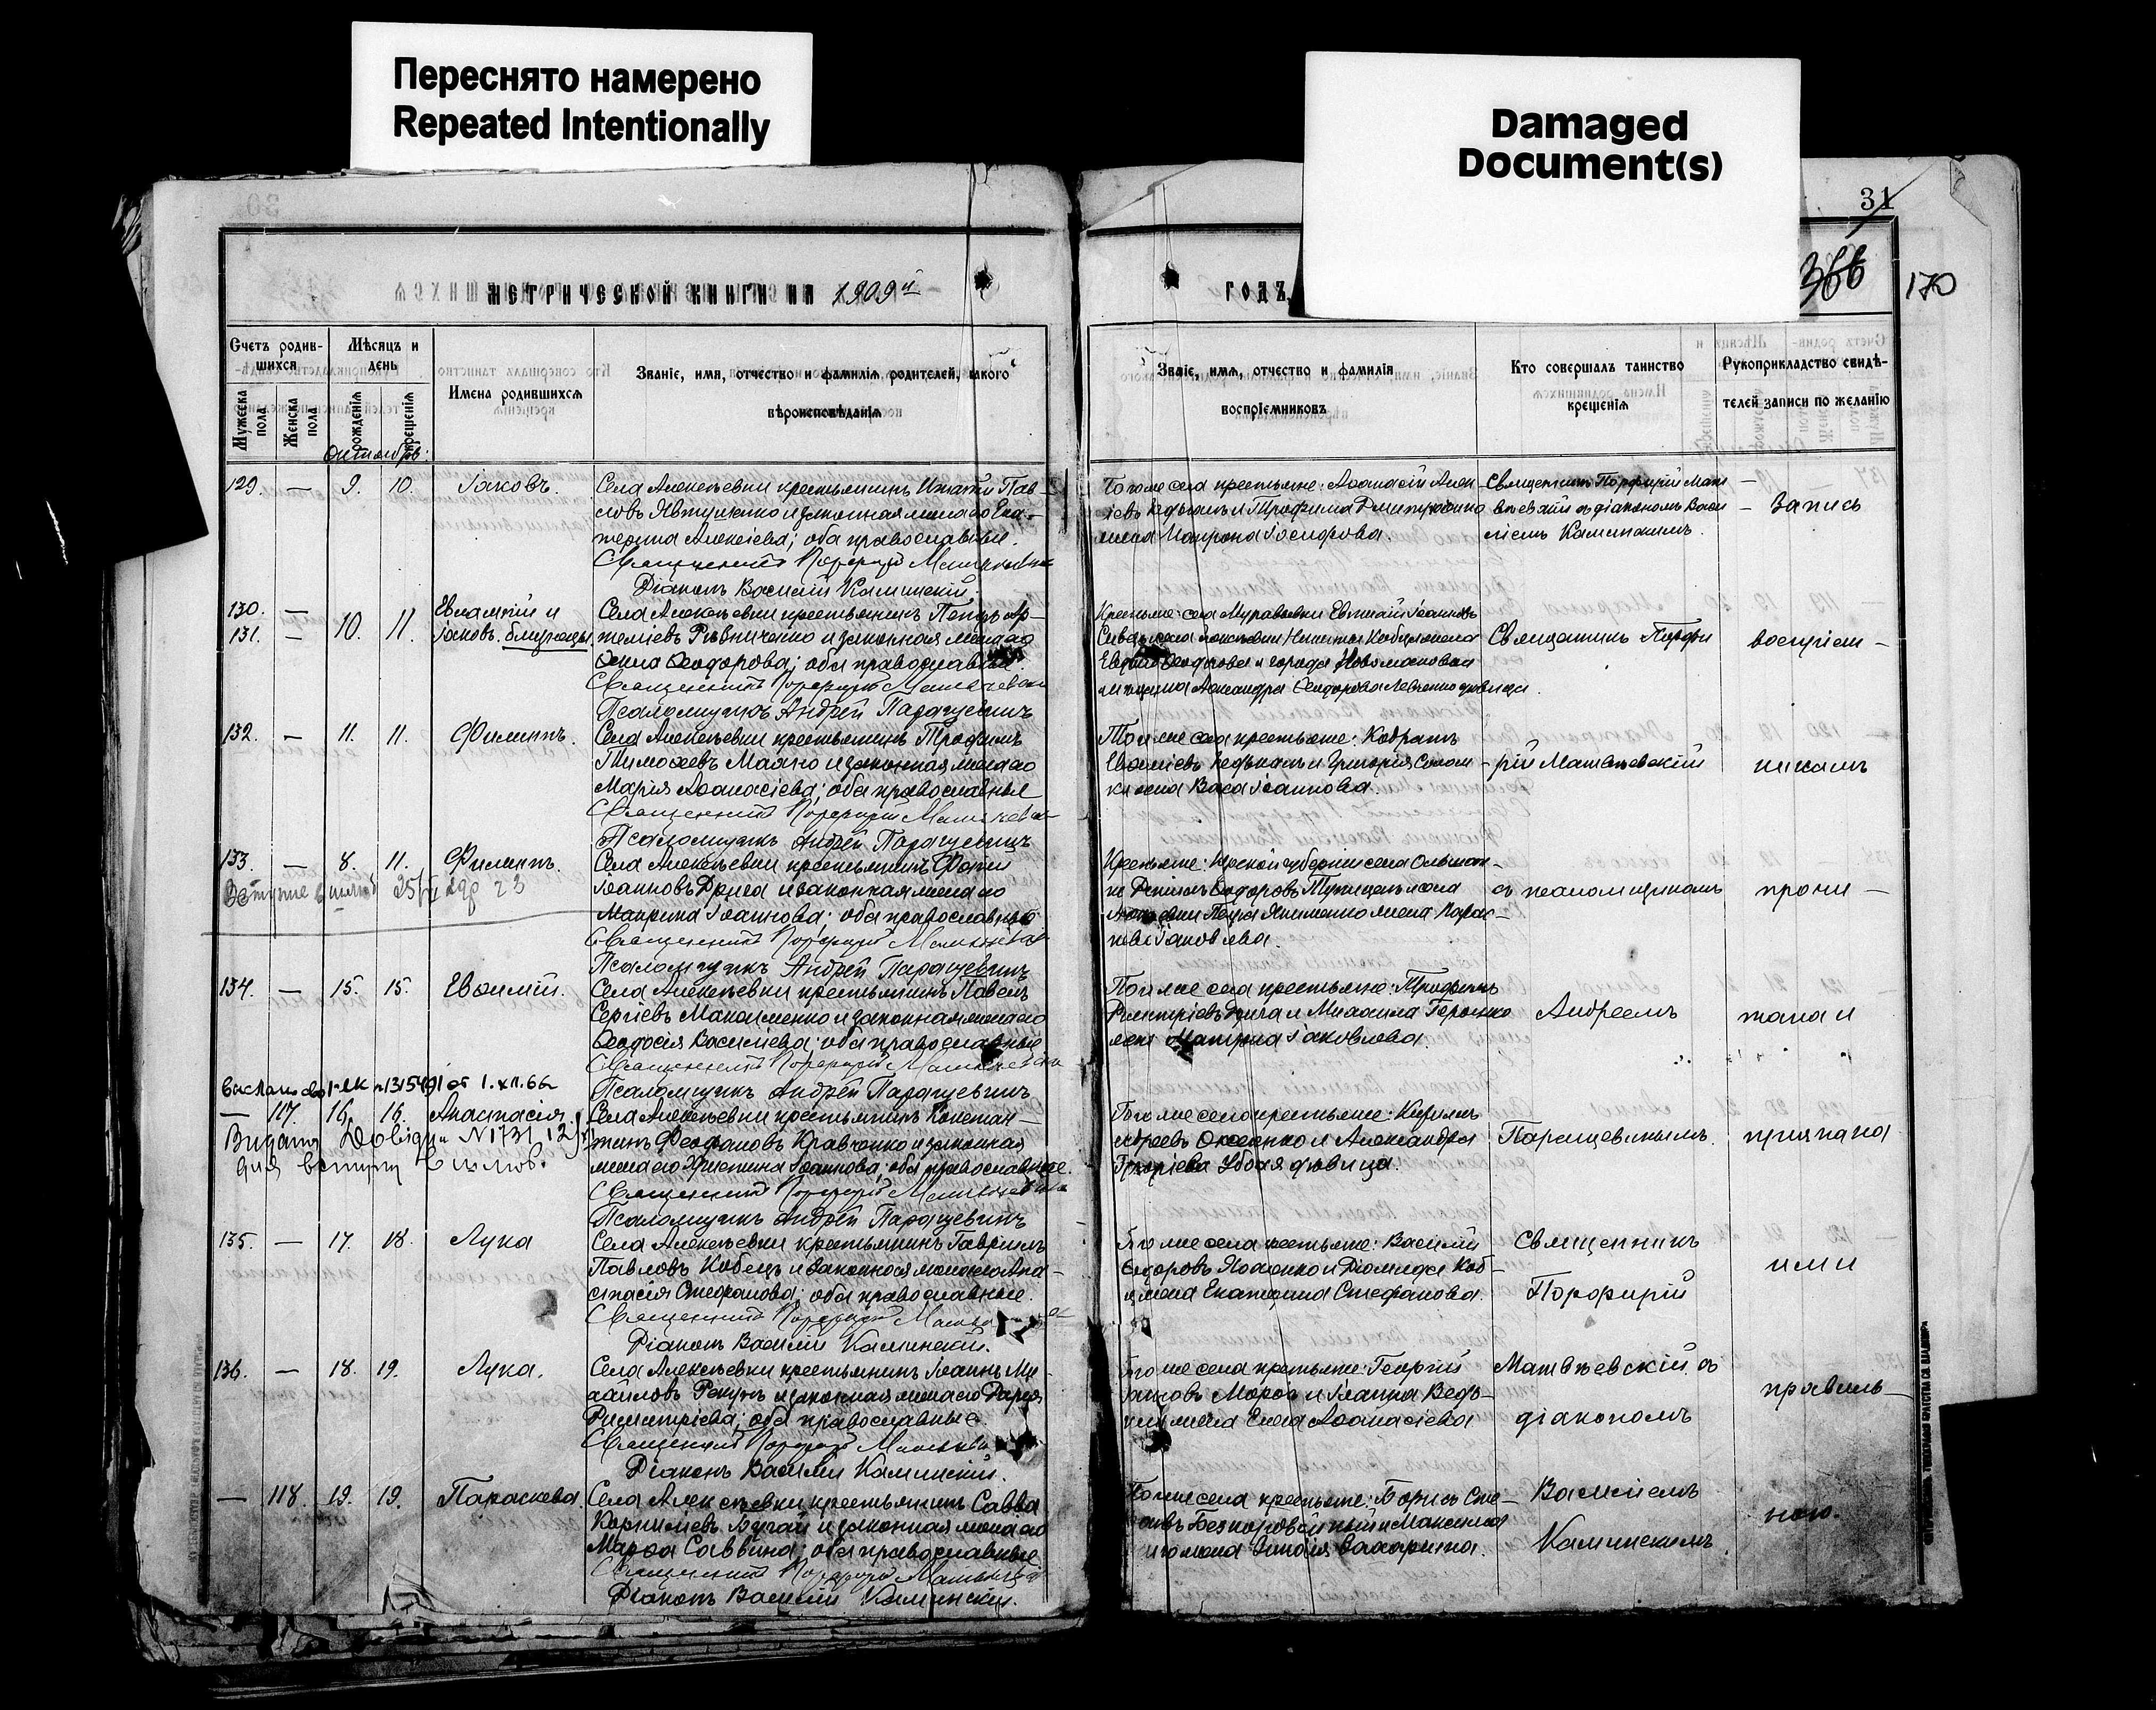 Переснято намерено
Repeated Intentionally
Damaged
Document(s)
31
366
170
МЕТРИЧЕСКОЙ КНИГИ НА 1909й
ГОДЪ,
Счетъ родив-
шихся
Мѣсяцъ и
день
Мужеска
пола
Женска
пола
рожденія
крещенія
Имена родившихся
Званіе, имя, отчество и фамилія родителей, какого
вѣроисповѣданія
Званіе, имя, отчество и фамилія
воспріемниковъ
Кто совершалъ таинство
крещенія
Рукоприкладство свидѣ-
телей записи по желанію
Октябрь:
129. — 9. 10. Іаковъ.
Села Алексѣевки крестьянинъ Игнатій Пав-
ловъ Явтушенко и законная жена его Ека-
терина Алексіева; оба православные.
Священникъ Порфирій Матвѣевскій
Діаконъ Василій Калинскій.
Того же села крестьяне: Аѳанасій Алек-
сіевъ и Трофима
жена Матрона Іосифова.
Священникъ Порфирій Мат-
вѣевскій съ діакономъ Васи-
ліемъ Калинскимъ.
— Запись
130. —
131. — 10. 11.
Евлампій и
Іаковъ. близнецы.
Села Алексѣевки крестьянинъ Петръ Ар-
теміевъ Рѣвниченко и законная жена его
Ѳеодорова; оба православные.
Священникъ Порфирій Матвѣевскій
Псаломщикъ Андрей Паращевинъ
Крестьяне: села Муравьевки Евгеній Іоанновъ
села Алексѣевки Никиты жена
Ѳеодорова и города Новомосковска
мѣщанка Александра Ѳеодорова дѣвица.
Священникъ Порфи-
воспріем-
132. — 11. 11. Филиппъ.
Села Алексѣевки крестьянинъ Трофимъ
Тимоѳеевъ Маяно и законная жена его
Марія Аѳанасіева; оба православные
Священникъ Порфирій Матвѣевскій
Псаломщикъ Андрей Паращевинъ
Того же села крестьяне: Кодратъ
Евѳиміевъ и Григорія
жена Васса Іоаннова.
рій Матвѣевскій
никамъ
133. — 8. 11. Филиппъ.
25/VI 29р 23
Села Алексѣевки крестьянинъ Фотій
Іоанновъ Дрига и законная жена его
Маврина Іоаннова; оба православные
Священникъ Порфирій Матвѣевскій
Псаломщикъ Андрей Паращевинъ
Крестьяне: Курской губерніи села
Ѳеодоровъ и села
Алексѣевки Петра Якименко жена Парас-
кева Іаковлева.
съ псаломщикомъ
прочи-
134. — 15. 15. Евѳимій.
Села Алексѣевки крестьянинъ Павелъ
Сергіевъ Максименко и законная жена его
Ѳеодосія Василіева; оба православные
Священникъ Порфирій Матвѣевскій
Псаломщикъ Андрей Паращевинъ
Того же села крестьяне: Трофимъ
Димитріевъ Дрига и Михаила
жена Матрона Іаковлева.
Андреемъ
тана и
— 117. 16. 16. Анастасія
Видана Довідка N 1731 12/
для вступу в
Села Алексѣевки крестьянинъ Констан-
тинъ Ѳеофановъ Кравченко и законная
жена его Христина Іоаннова; оба православные.
Священникъ Порфирій Матвѣевскій
Псаломщикъ Андрей Паращевинъ
Того же села крестьяне: Кириллъ
Андреевъ и Александра
Григоріева Убоая дѣвица.
Паращевинымъ.
признана
135. — 17. 18. Лука
Села Алексѣевки крестьянинъ Гавріилъ
Павловъ Кобецъ и законная жена его Ана-
стасія Стефанова; оба православные.
Священникъ Порфирій
Діаконъ Василій Калинскій.
Того же села крестьяне: Василій
Ѳеодоровъ и Діомида Коб-
ца жена Екатерина Стефанова.
Священникъ
Порфирій
ими
136. — 18. 19. Лука.
Села Алексѣевки крестьянинъ Іоаннъ Ми-
хайловъ Рекунъ и законная жена его Дарія
Димитріева; оба православные
Священникъ Порфирій
Діаконъ Василій Калинскій.
Того же села крестьяне: Георгій
Іаковъ Морозъ и Іоанна
жена Елена Аѳанасіева
Матвѣевскій съ
діакономъ
правиль-
— 118. 19. 19. Параскева.
Села Алексѣевки крестьянинъ Савва
Корниліевъ Бугай и законная жена его
Марѳа Саввина; оба православные
Священникъ Порфирій
Діаконъ Василій Калинскій.
Того же села крестьяне: Борисъ Сте-
фановъ и Максима
жена Захарина.
Василіемъ
Калинскимъ
ною.